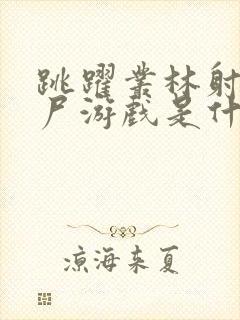 跳躍叢林射
尸游戲是什
涼海来夏